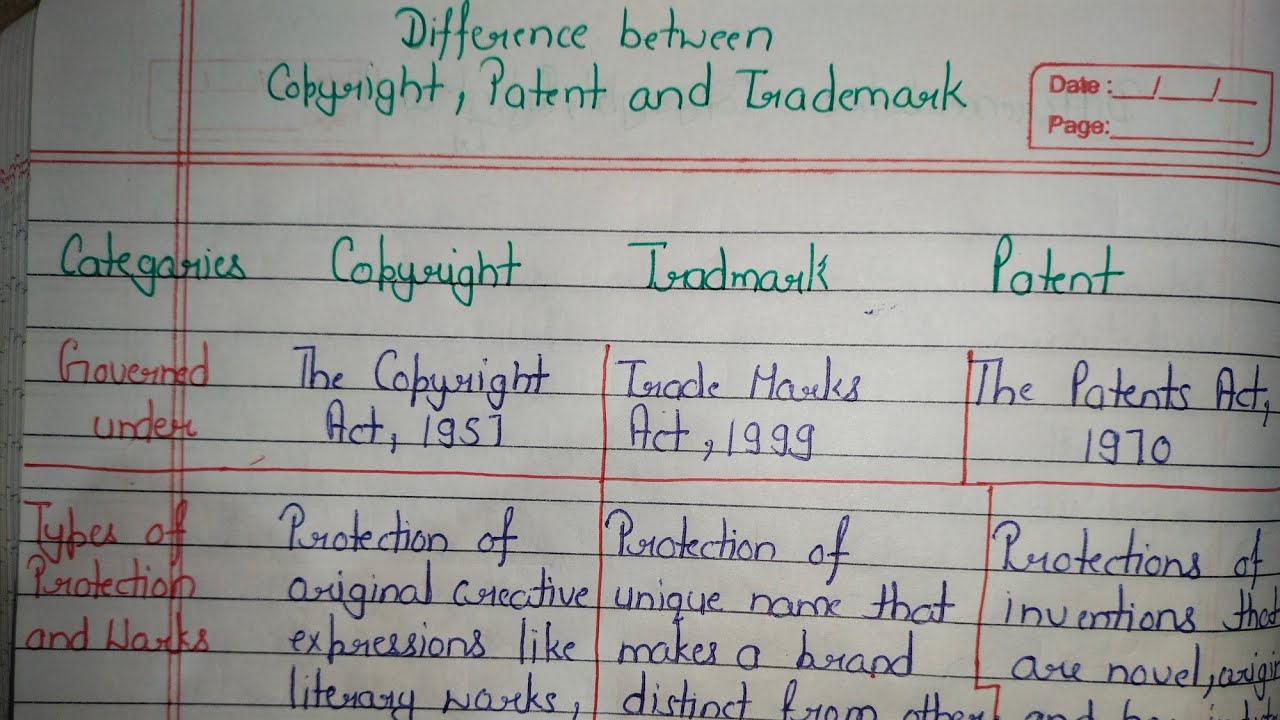 Difference between
Copyright, Patent and Trademark
Date: __/__/__
Page: ______
Categaries Copyright Tradmark Patent
Governed The Copyright Trade Marks The Patents Act,
under Act, 1957 Act, 1999 1970
Types of Protection of Protection of Protections of
Protection original creative unique name that inventions that
and Warks expressions like makes a brand are novel,
literary warks, distinct from other and